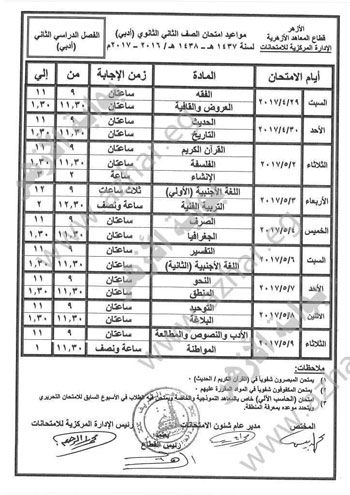 الأزهر
قطاع المعاهد الأزهرية
الإدارة المركزية للامتحانات
مواعيد امتحان الصف الثاني الثانوي (أدبي)
لسنة ١٤٣٧ هـ - ١٤٣٨ هـ / ٢٠١٦ - ٢٠١٧م
الفصل الدراسي الثاني
(أدبي)
أيام الامتحان المادة زمن الإجابة من إلي
السبت ٢٠١٧/٤/٢٩ الفقه ساعتان ٩ ١١
العروض والقافية ساعتان ١١,٣٠ ١,٣٠
الأحد ٢٠١٧/٤/٣٠ الحديث ساعتان ٩ ١١
التاريخ ساعتان ١١,٣٠ ١,٣٠
الثلاثاء ٢٠١٧/٥/٢ القرآن الكريم ساعتان ٩ ١١
الفلسفة ساعتان ١١,٣٠ ١,٣٠
الإنشاء ساعة ٢ ٣
الأربعاء ٢٠١٧/٥/٣ اللغة الأجنبية (الأولي) ثلاث ساعات ٩ ١٢
التربية الفنية ساعة ونصف ١٢,٣٠ ٢
الخميس ٢٠١٧/٥/٤ الصرف ساعتان ٩ ١١
الجغرافيا ساعتان ١١,٣٠ ١,٣٠
السبت ٢٠١٧/٥/٦ التفسير ساعتان ٩ ١١
اللغة الأجنبية (الثانية) ساعتان ١١,٣٠ ١,٣٠
الأحد ٢٠١٧/٥/٧ النحو ساعتان ٩ ١١
المنطق ساعتان ١١,٣٠ ١,٣٠
الاثنين ٢٠١٧/٥/٨ التوحيد ساعتان ٩ ١١
البلاغة ساعتان ١١,٣٠ ١,٣٠
الثلاثاء ٢٠١٧/٥/٩ الأدب والنصوص والمطالعة ساعتان ٩ ١١
المواطنة ساعة ونصف ١١,٣٠ ١
ملاحظات:
١) يمتحن المبصرون شفوياً في (القرآن الكريم / الحديث).
٢) يمتحن المكفوفون شفوياً في المواد المقررة عليهم.
٣) يمتحن (الحاسب الآلي) خاص بالمعاهد النموذجية والخاصة ويمتحن فيه الطلاب في الأسبوع السابق للامتحان التحريري
ويتحدد موعده بمعرفة المنطقة.
المختص مدير عام شئون الامتحانات رئيس الإدارة المركزية للامتحانات
يعتمد
رئيس القطاع
www.azhar.eg
بوابة الأزهر